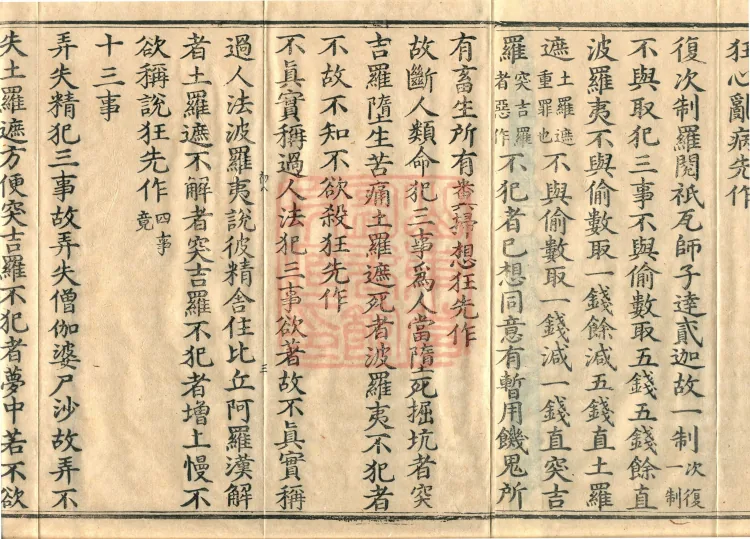 狂心亂病先作
復次制羅閱祇瓦師子達貳迦故一制次復一制
不與取犯三事不與偷數取五錢五錢餘直
波羅夷不與偷數取一錢餘減五錢直土羅
遮土羅遮重罪也不與偷數取一錢減一錢直突吉
羅突吉羅者惡作不犯者已想同意有暫用餓鬼所
有畜生所有糞掃想狂先作
故斷人類命犯三事爲人當墮死掘坑者突
吉羅墮生苦痛土羅遮死者波羅夷不犯者
不故不知不欲殺狂先作
不真實稱過人法犯三事欲著故不真實稱
過人法波羅夷說彼精舍住比丘阿羅漢解
者土羅遮不解者突吉羅不犯者增上慢不
欲稱說狂先作四事竟
十三事
弄失精犯三事故弄失僧伽婆尸沙故弄不
失土羅遮方便突吉羅不犯者夢中若不欲
三